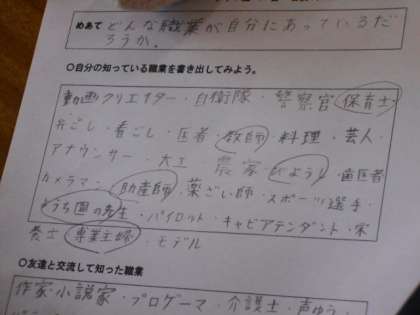 めあて どんな職業が自分にあっているだ
ろうか。
○自分の知っている職業を書き出してみよう。
動画クリエイター・自衛隊・警察官・保育士・
弁ごし・看ごし・医者・教師・料理・芸人・
アナウンサー・大工・農家・びようし・歯医者
カメラマン・助産師・薬ざい師・スポーツ選手・
ようち園の先生・パイロット・キャビアテンダント・栄
養士・専業主婦・モデル
○友達と交流して知った職業
作家・小説家・プロゲーマ・介護士・声ゆう